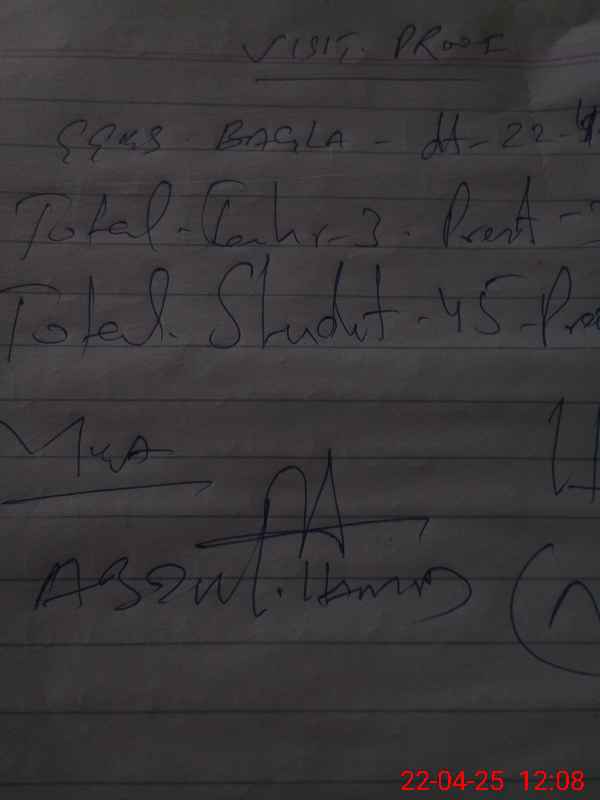 VISIT. PROOF
GGHS - BAGLA - dt - 22-4
Total - Teachr - 3 . Presnt -
Total. Studnt - 45 - Pres
ABDUL. HAMID
22-04-25 12:08